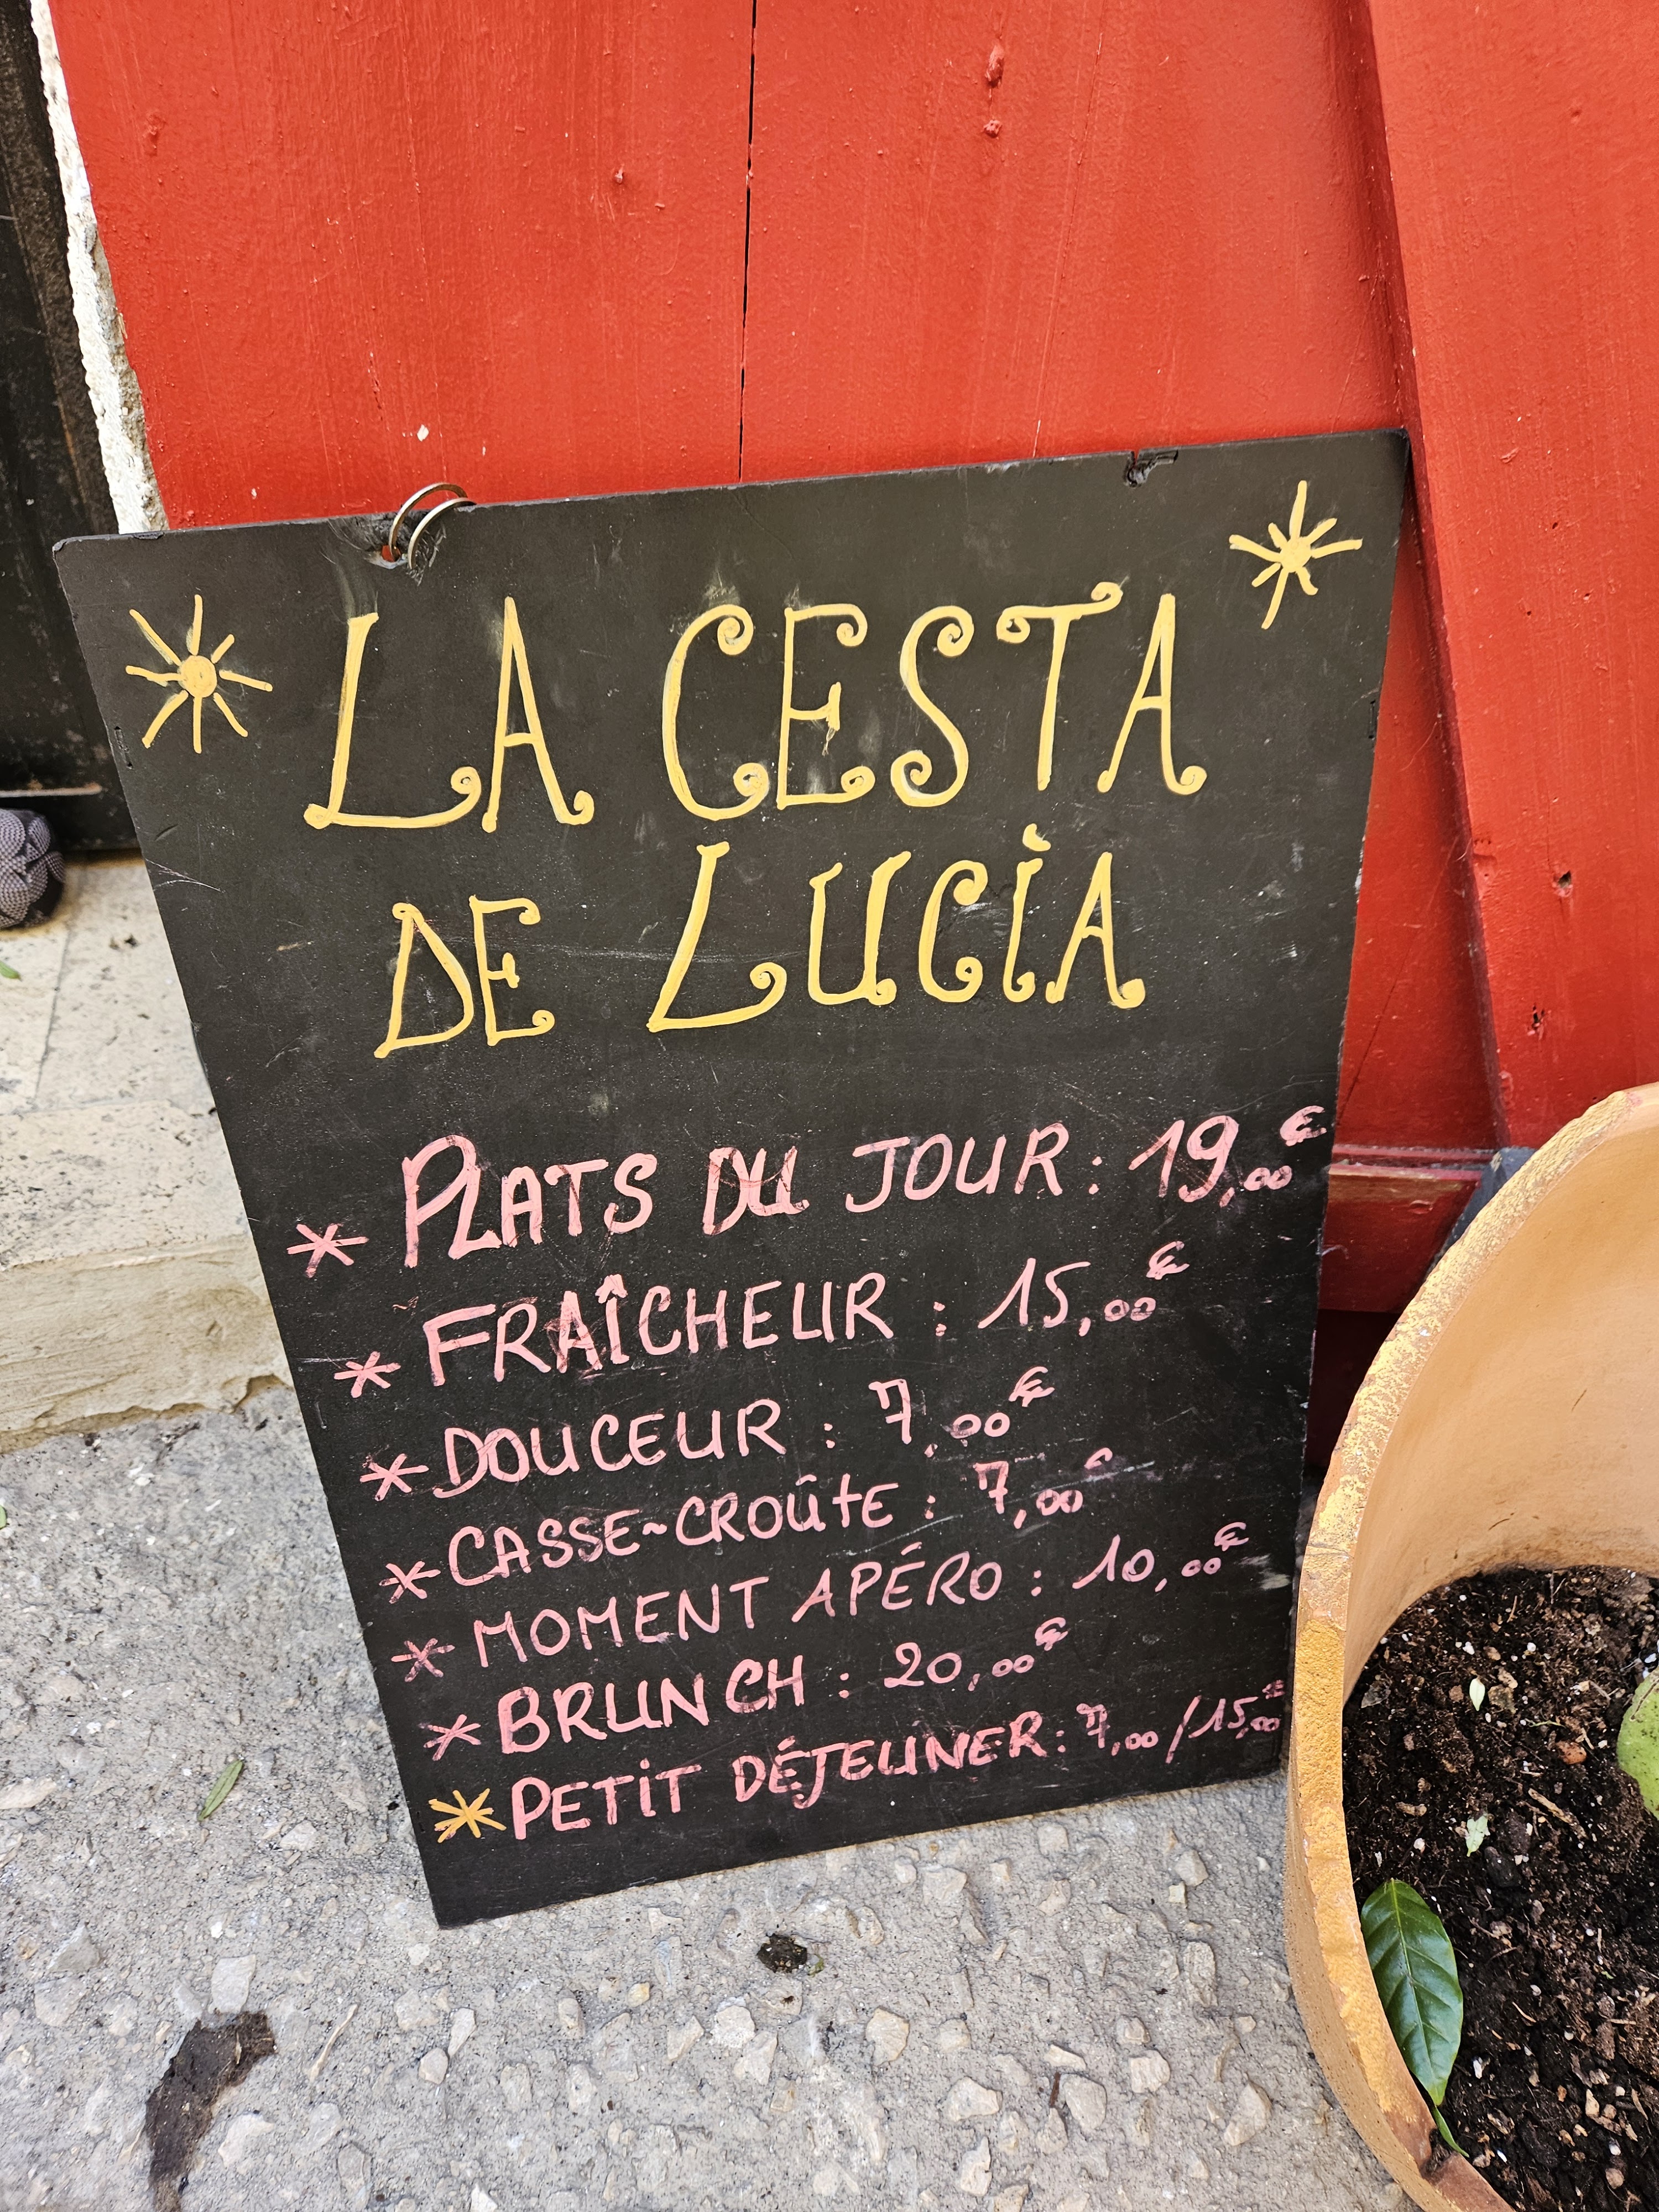 LA CESTA
DE LUCIA
* PLATS DU JOUR : 19,00€
* FRAÎCHEUR : 15,00€
* DOUCEUR : 7,00€
* CASSE~CROÛTE : 7,00€
* MOMENT APÉRO : 10,00€
* BRUNCH : 20,00€
* PETIT DÉJEUNER : 7,00 / 15,00€